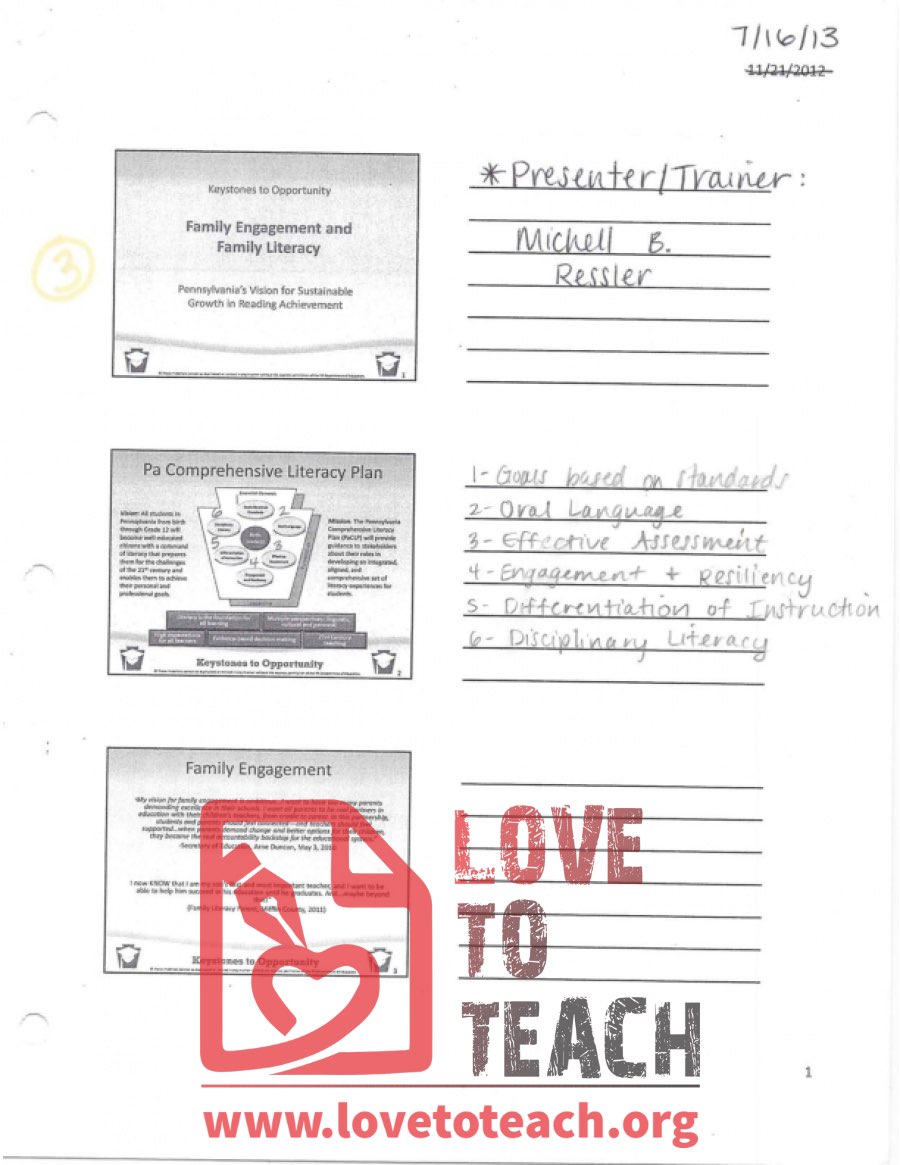 7/16/13
11/21/2012
3
Keystones to Opportunity
Family Engagement and
Family Literacy
Pennsylvania's Vision for Sustainable
Growth in Reading Achievement
1
*Presenter/Trainer:
Michell B.
Ressler
Pa Comprehensive Literacy Plan
Vision: All students in
Pennsylvania from birth
through Grade 12 will
become well educated
citizens with a command
of literacy that prepares
them for the challenges
of the 21st century and
enables them to achieve
their personal and
professional goals.
1
2
3
4
5
6
Mission: The Pennsylvania
Comprehensive Literacy
Plan (PaCLP) will provide
guidance to stakeholders
about their roles in
developing an integrated,
aligned, and
comprehensive set of
literacy experiences for
students.
Literacy is the foundation for
all learning
Multiple perspectives: linguistic,
cultural and personal
High expectations
for all learners
Evidence-based decision making
21st Century
teaching
Keystones to Opportunity
2
1- Goals based on standards
2- Oral Language
3- Effective Assessment
4- Engagement + Resiliency
5- Differentiation of Instruction
6- Disciplinary Literacy
Family Engagement
"My vision for family engagement is ambitious...I want to have too many parents
demanding excellence in their schools. I want all parents to be real partners in
education with their children's teachers, from cradle to career. In this partnership,
students and parents should feel connected—and teachers should feel
supported...when parents demand change and better options for their children,
they become the real accountability backstop for the educational system."
-Secretary of Education, Arne Duncan, May 3, 2010
I now KNOW that I am my son's first and most important teacher, and I want to be
able to help him succeed in his education until he graduates. And...maybe beyond
that!"
(Family Literacy Parent, Mifflin County, 2011)
Keystones to Opportunity
3
LOVE
TO
TEACH
www.lovetoteach.org
1